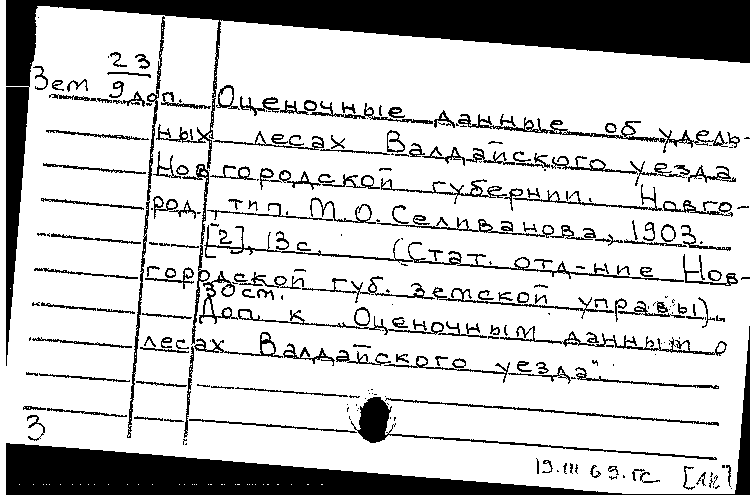 23
Зем 9 доп. Оценочные данные об удель-
ных лесах Валдайского уезда
Новгородской губернии. Новго-
род, тип. М.О. Селиванова, 1903.
[2], 13 с. (Стат. отд-ние Нов-
городской губ. земской управы).
30 см.
Доп. к „Оценочным данным о
лесах Валдайского уезда".
3
19.III 69. гс